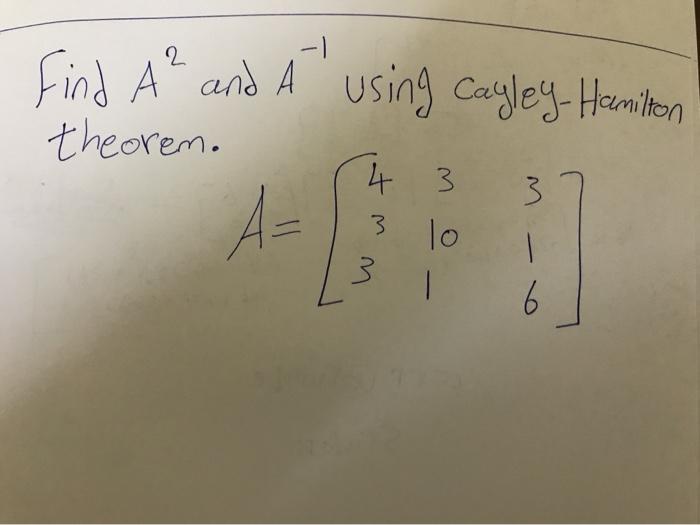 Find A² and A⁻¹ using Cayley-Hamilton
theorem.
A = [4 3 3
3 10 1
3 1 6]